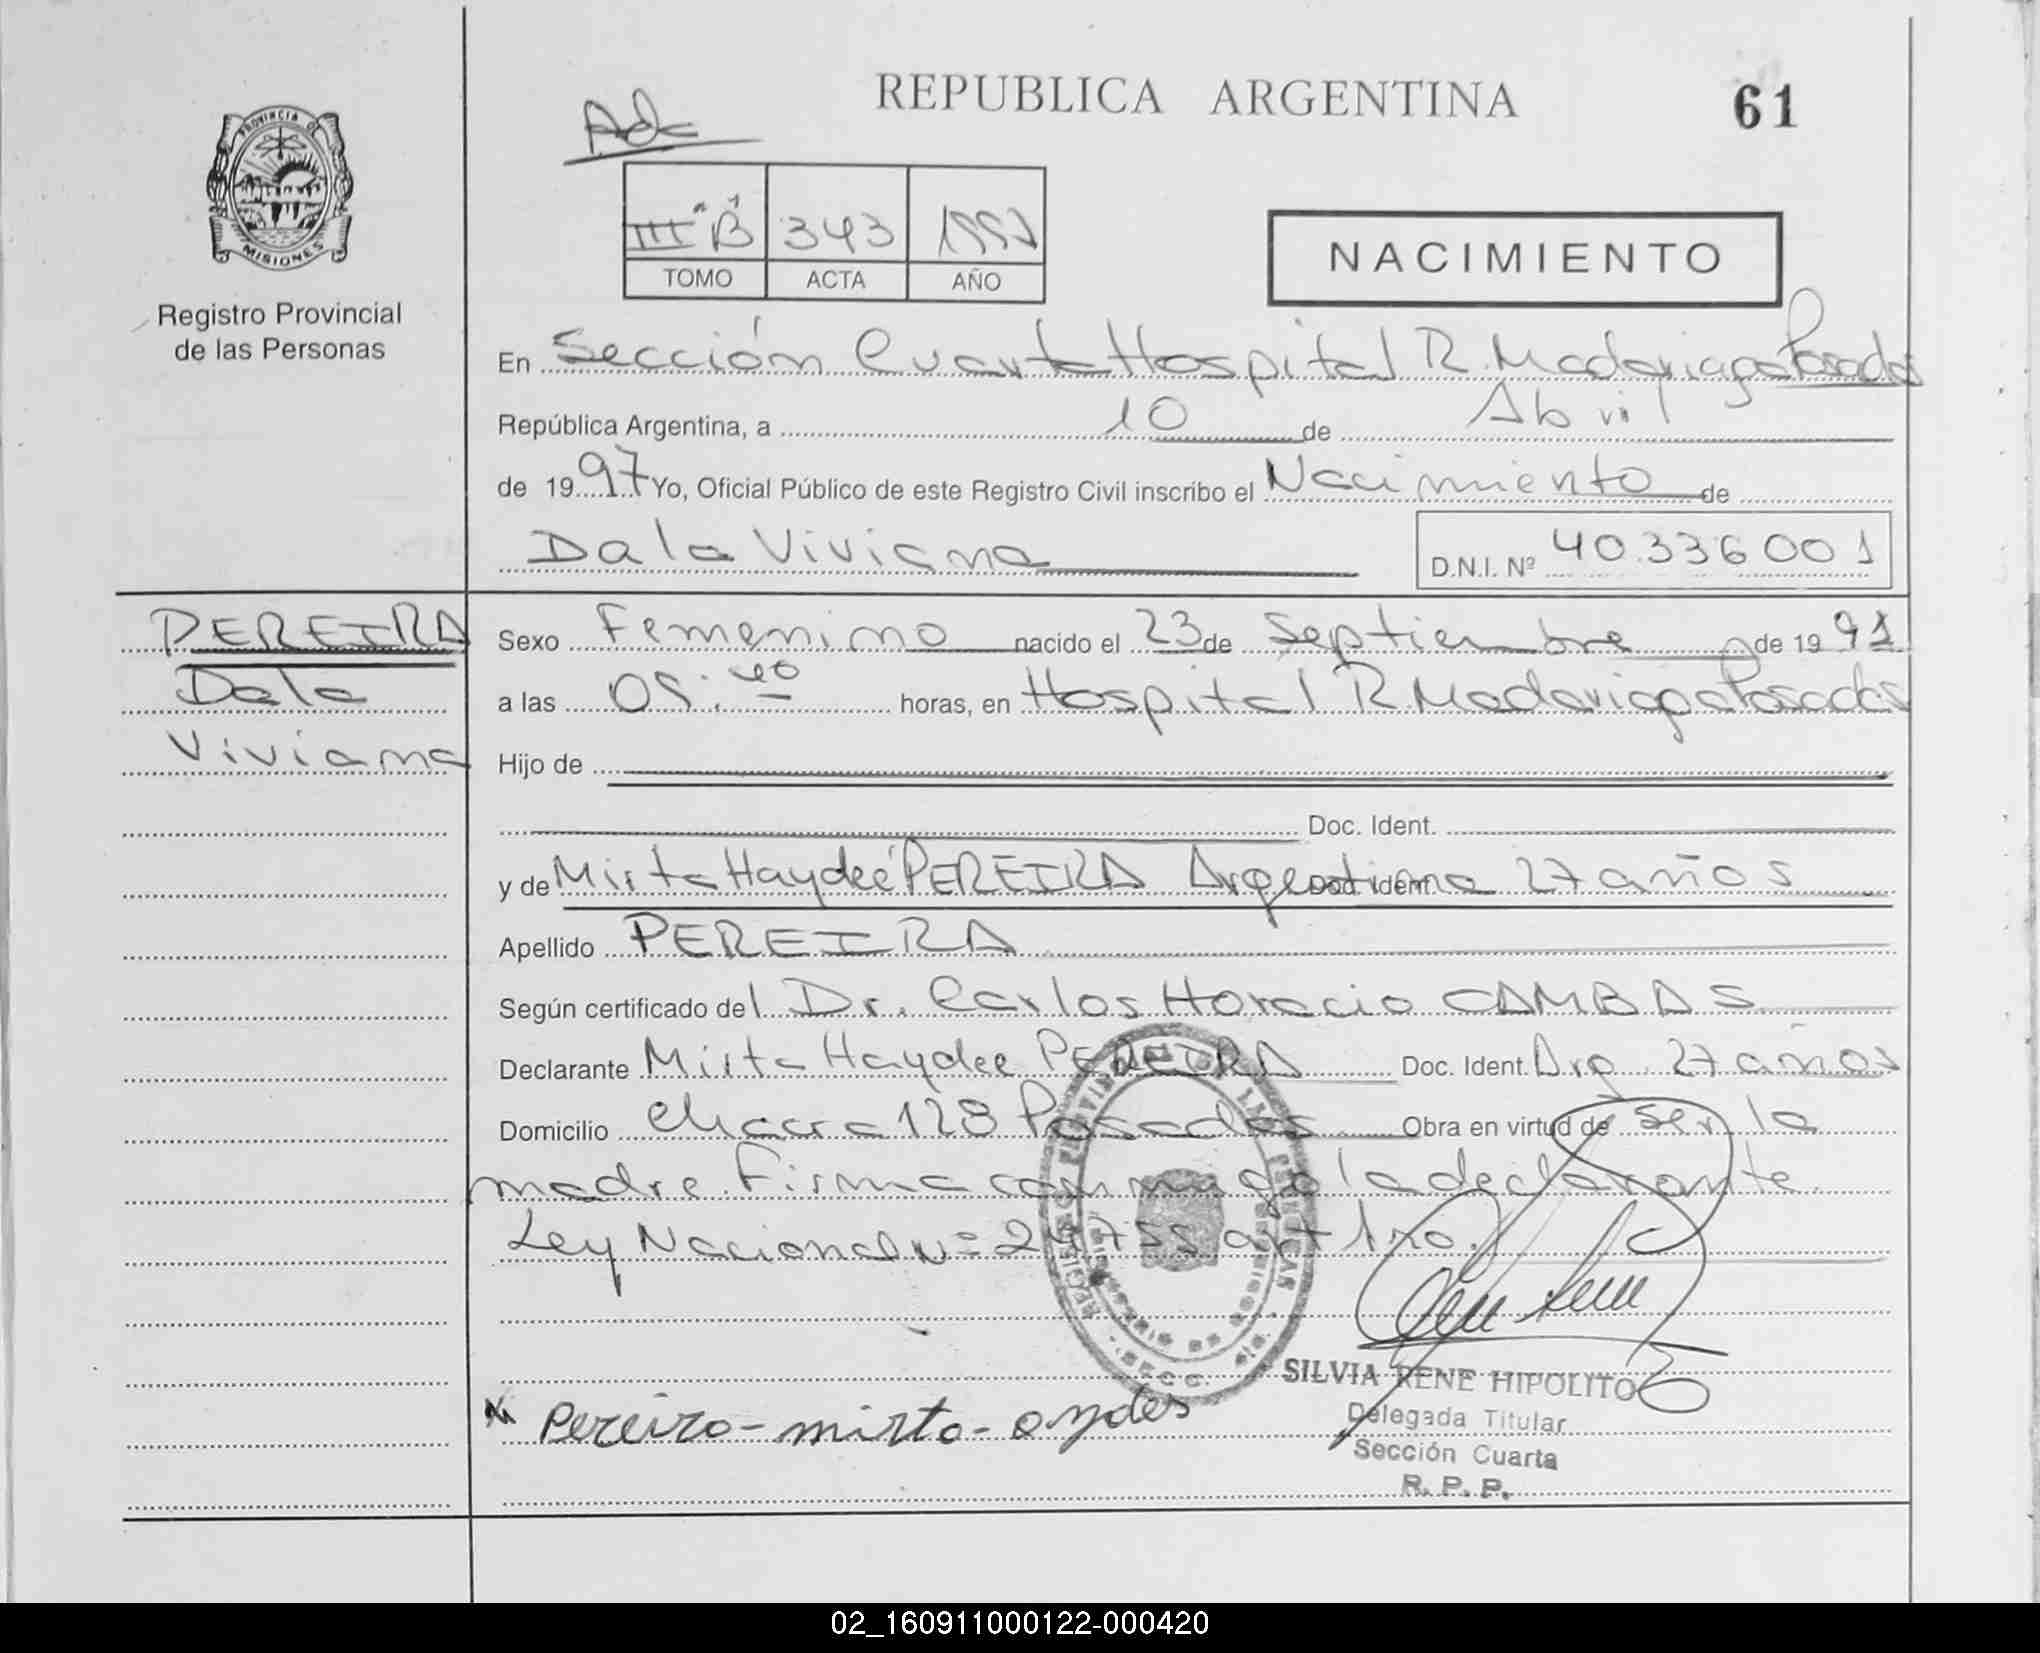 REPUBLICA ARGENTINA
61
PROVINCIA DE
MISIONES
Registro Provincial
de las Personas
Adc
III "B" 343 1997
TOMO ACTA AÑO
NACIMIENTO
En Sección Cuarta Hospital R. Madariaga Posadas
República Argentina, a 10 de Abril
de 1997 Yo, Oficial Público de este Registro Civil inscribo el Nacimiento de
Dala Viviana
D.N.I. Nº 40.336 001
PEREIRA
Dala
Viviana
Sexo Femenino nacido el 23 de Septiembre de 1991
a las 05:40 horas, en Hospital R. Madariaga Posadas
Hijo de
Doc. Ident.
y de Mirta Haydeé PEREIRA Argentina Doc. Ident. 27 años
Apellido PEREIRA
Según certificado del Dr. Carlos Horacio CAMBAS
Declarante Mirta Haydee PEREIRA Doc. Ident. Arg. 27 años
Domicilio Chacra 128 Posadas Obra en virtud de ser la
madre. Firma conmigo la declarante
Ley Nacional nº 24755 art 1ro.
SILVIA RENE HIPOLITO
Delegada Titular
Sección Cuarta
R. P. P.
Pereiro-mirto-aydes
02_160911000122-000420